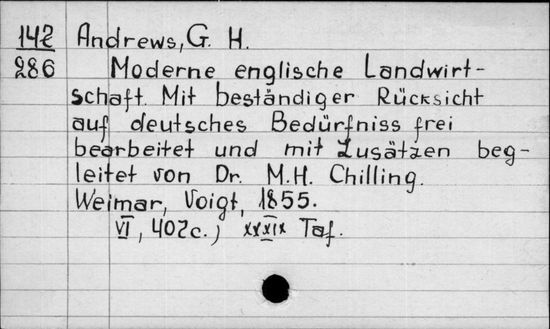 142 Andrews, G. H.
286 Moderne englische Landwirt-
schaft. Mit beständiger Rücksicht
auf deutsches Bedürfniss frei
bearbeitet und mit Zusätzen beg-
leitet von Dr. M.H. Chilling.
Weimar, Voigt, 1855.
VI, 402c.; XXXIX Taf.